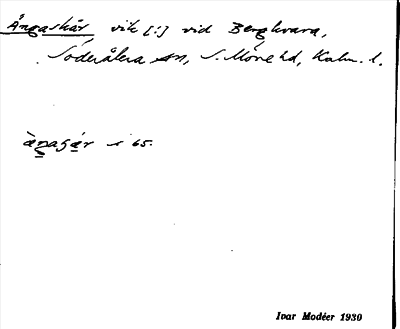 Ängaskär vik [:] vid Bergkvara,
Söderåkra sn, S. Möre hd, Kalm. l.
i 65.
Ivar Modéer 1930